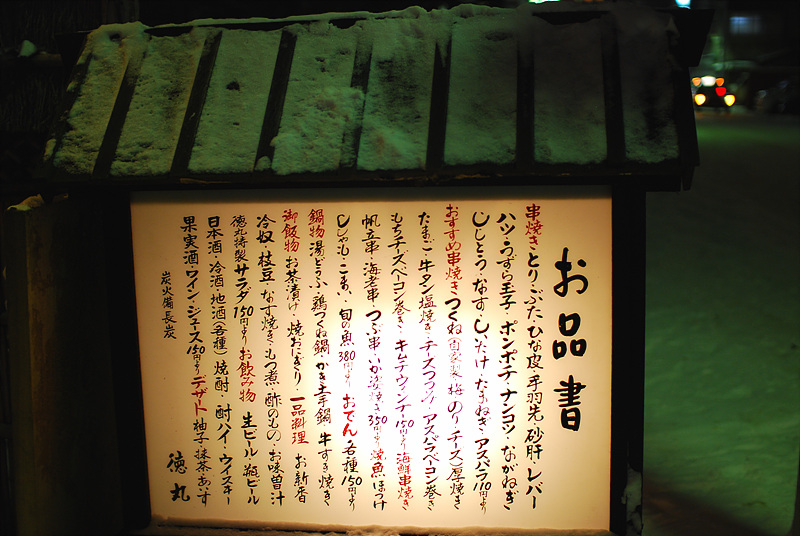 お品書
串焼き とり・ぶた・ひな皮・手羽先・砂肝・レバー
ハツ・うずら玉子・ボンボチ・ナンコツ・ながねぎ
ししとう・なす・しいたけ・たまねぎ・アスパラ 110円より
おすすめ串焼き つくね(自家製 梅 のり・チーズ) 厚焼き
たまご・牛タン塩焼き・チーズつくね・アスパラベーコン巻き
もちチーズベーコン巻き・キムチウィンナー 150円より 海鮮串焼き
帆立串・海老串・つぶ串・いか姿焼き 350円より 焼魚 ほっけ
ししゃも・こまい・旬の魚 380円より おでん 各種 150円より
鍋物 湯どうふ・鶏つくね鍋・かき土手鍋・牛すき焼き
御飯物 お茶漬け・焼おにぎり・一品料理 お新香
冷奴・枝豆・なす焼き・もつ煮・酢のもの・お味噌汁
徳丸特製サラダ 150円より お飲み物 生ビール・瓶ビール
日本酒・冷酒・地酒(各種)焼酎・酎ハイ・ウイスキー
果実酒・ワイン・ジュース 150円より デザート 柚子・抹茶あいす
炭火備長炭
徳丸